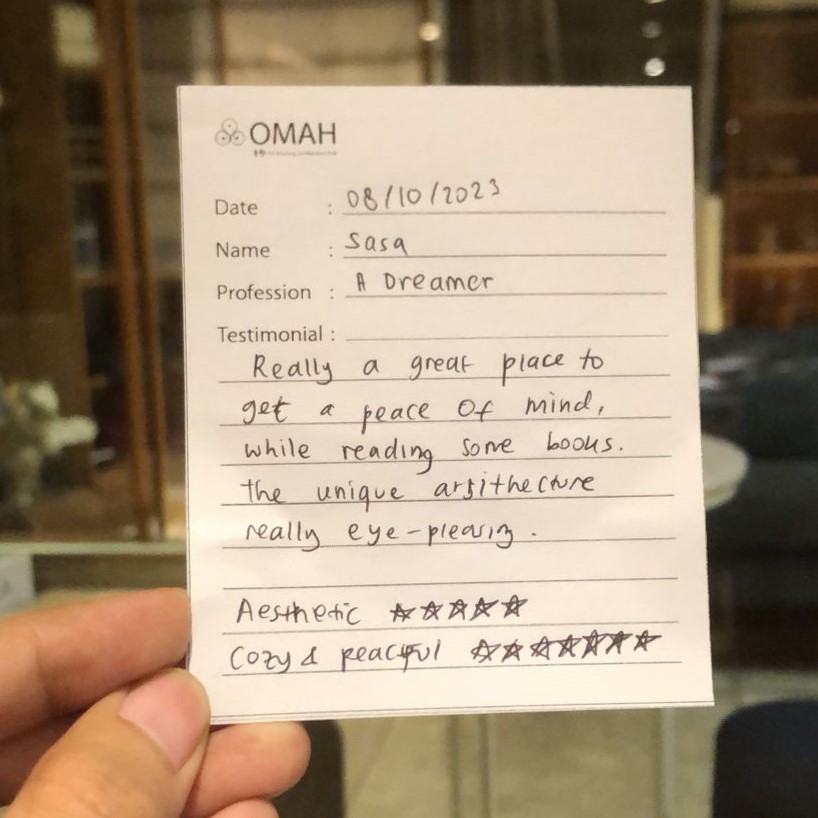 OMAH
Date : 08/10/2023
Name : Sasa
Profession : A Dreamer
Testimonial :
Really a great place to
get a peace of mind,
while reading some books.
the unique arsithecture
really eye-pleasing.
Aesthetic ☆☆☆☆☆
Cozy & peaceful ☆☆☆☆☆☆☆